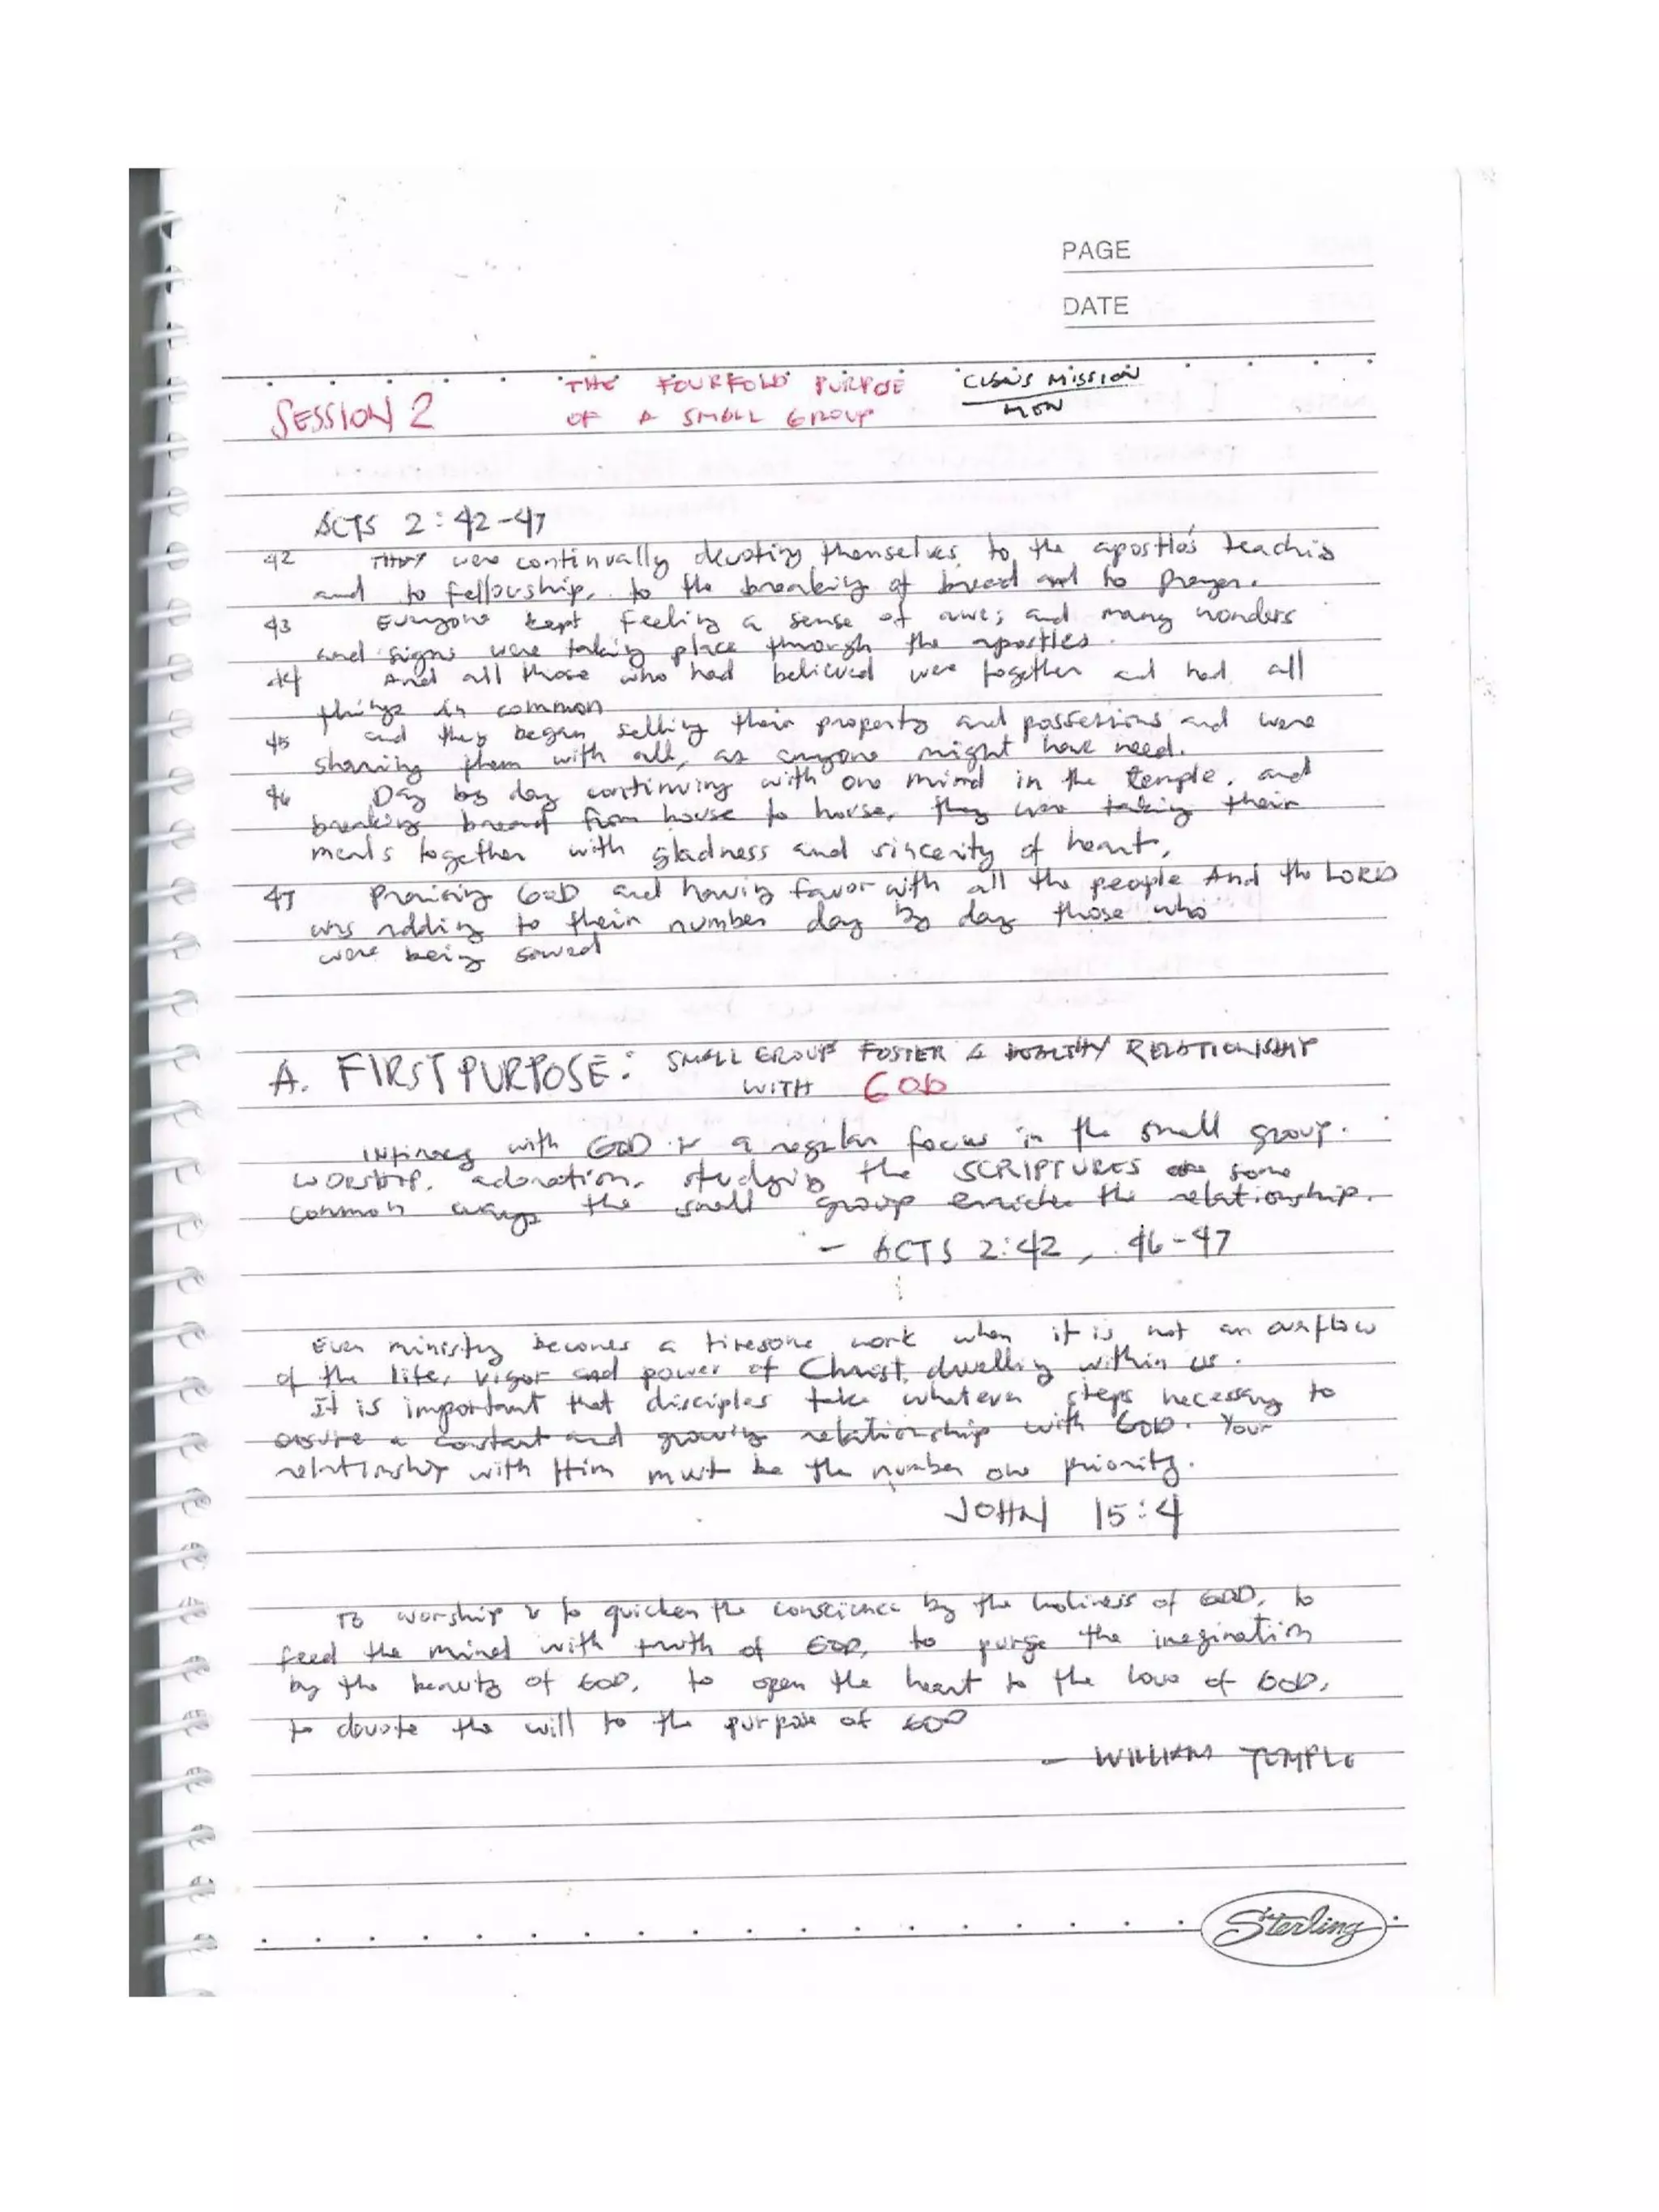 PAGE
DATE
SESSION 2 THE FOURFOLD PURPOSE MISSION
OF A SMALL GROUP
ACTS 2:42-47
42 THEY were continually devoting themselves to the apostle's teaching
and to fellowship, to the breaking of bread and to prayer.
43 Everyone kept feeling a sense of awe; and many wonders
and signs were taking place through the apostles.
44 And all those who had believed were together and had all
things in common
45 and they began selling their property and possessions and were
sharing them with all, as anyone might have need.
46 Day by day continuing with one mind in the temple, and
breaking bread from house to house, they were taking their
meals together with gladness and sincerity of heart,
47 Praising GOD and having favor with all the people And the LORD
was adding to their number day by day those who
were being saved
A. FIRST PURPOSE: SMALL GROUP FOSTER A HEALTHY RELATIONSHIP
WITH GOD
INtimacy with GOD is a regular focus in the small group.
WORSHIP, adoration, studying the SCRIPTURES are some
common ways the small group enriches the relationship.
- ACTS 2:42, 46-47
Even ministry becomes a tiresome work when it is not an overflow
of the life, vigor and power of Christ dwelling within us.
It is important that disciples take whatever steps necessary to
ensure a constant and growing relationship with GOD. Your
relationship with Him must be the number one priority.
JOHN 15:4
To worship is to quicken the conscience by the holiness of GOD, to
feed the mind with truth of GOD, to purge the imagination
by the beauty of GOD, to open the heart to the love of GOD,
to devote the will to the purpose of GOD
- WILLIAM TEMPLE
Sterling